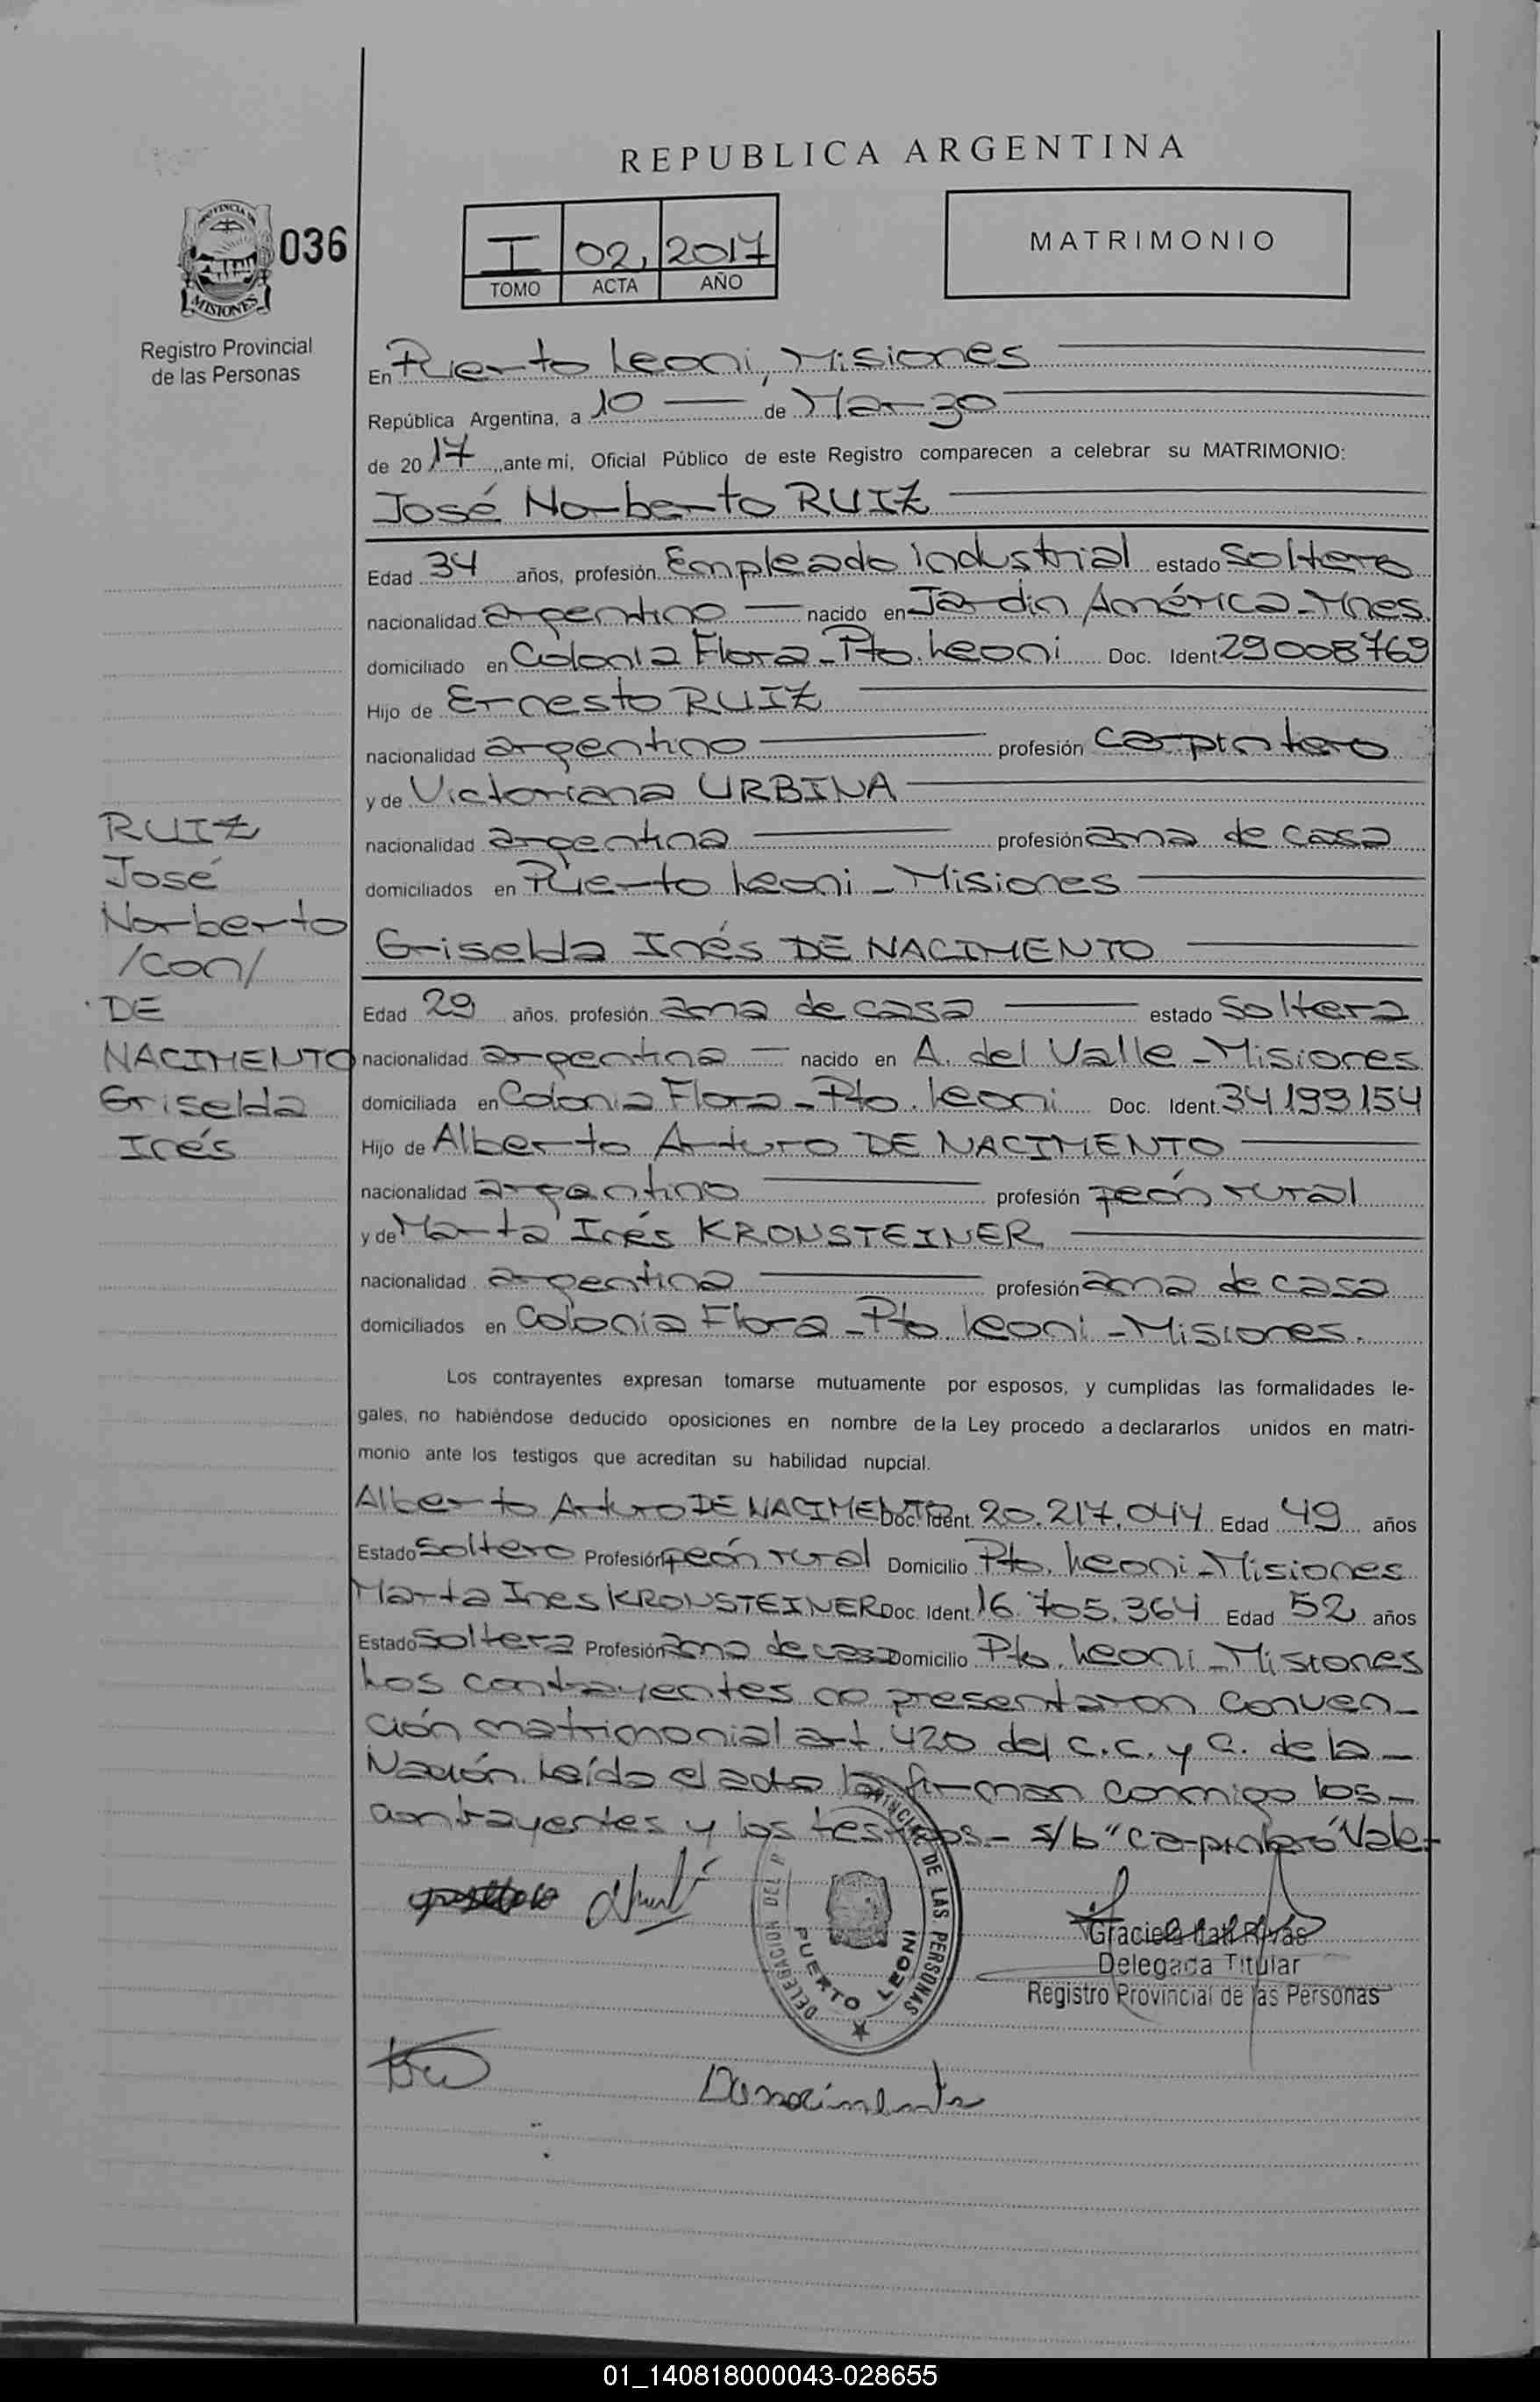 REPUBLICA ARGENTINA
PROVINCIA DE
MISIONES
036
Registro Provincial
de las Personas
I 02, 2017
TOMO ACTA AÑO
MATRIMONIO
En Puerto Leoni, Misiones
República Argentina, a 10 de Marzo
de 2017, ante mi, Oficial Público de este Registro comparecen a celebrar su MATRIMONIO:
José Norberto RUIZ
Edad 34 años, profesión Empleado industrial estado soltero
nacionalidad argentino nacido en Jardín América-Mnes.
domiciliado en Colonia Flora-Pto. Leoni Doc. Ident. 29008769
Hijo de Ernesto RUIZ
nacionalidad argentino profesión carpintero
y de Victoriana URBINA
nacionalidad argentina profesión ama de casa
domiciliados en Puerto Leoni - Misiones
Griselda Inés DE NACIMENTO
Edad 29 años, profesión ama de casa estado soltera
nacionalidad argentina nacido en A. del Valle - Misiones
domiciliada en Colonia Flora - Pto. Leoni Doc. Ident. 34199154
Hijo de Alberto Arturo DE NACIMENTO
nacionalidad argentino profesión peón rural
y de Marta Inés KRONSTEINER
nacionalidad argentina profesión ama de casa
domiciliados en Colonia Flora - Pto. Leoni - Misiones.
RUIZ
José
Norberto
/con/
DE
NACIMENTO
Griselda
Inés
Los contrayentes expresan tomarse mutuamente por esposos, y cumplidas las formalidades le-
gales, no habiéndose deducido oposiciones en nombre de la Ley procedo a declararlos unidos en matri-
monio ante los testigos que acreditan su habilidad nupcial.
Alberto Arturo DE NACIMENTO Doc. Ident. 20.217.044 Edad 49 años
Estado soltero Profesión peón rural Domicilio Pto. Leoni - Misiones
Marta Ines KRONSTEINER Doc. Ident. 16.705.364 Edad 52 años
Estado soltera Profesión ama de casa Domicilio Pto. Leoni - Misiones
Los contrayentes no presentaron conven-
ción matrimonial art. 420 del C.C. y C. de la -
Nación. Leído el acta la firman conmigo los -
contrayentes y los testigos - s/b "carpintero" Vale-
DELEGACION DEL DE LAS PERSONAS
PUERTO LEONI
Graciela Rivas
Delegada Titular
Registro Provincial de las Personas
01_140818000043-028655